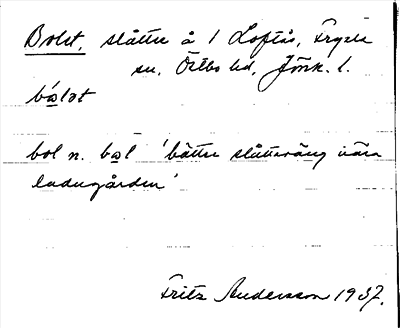 Bolet, slåtter å 1 Loftås, Fryele
sn, Östbo hd, Jönk. l.
bo̱lət
bol n. bo̱l 'bättre slåtteräng nära
ladugården'
Fritz Andersson 1937.